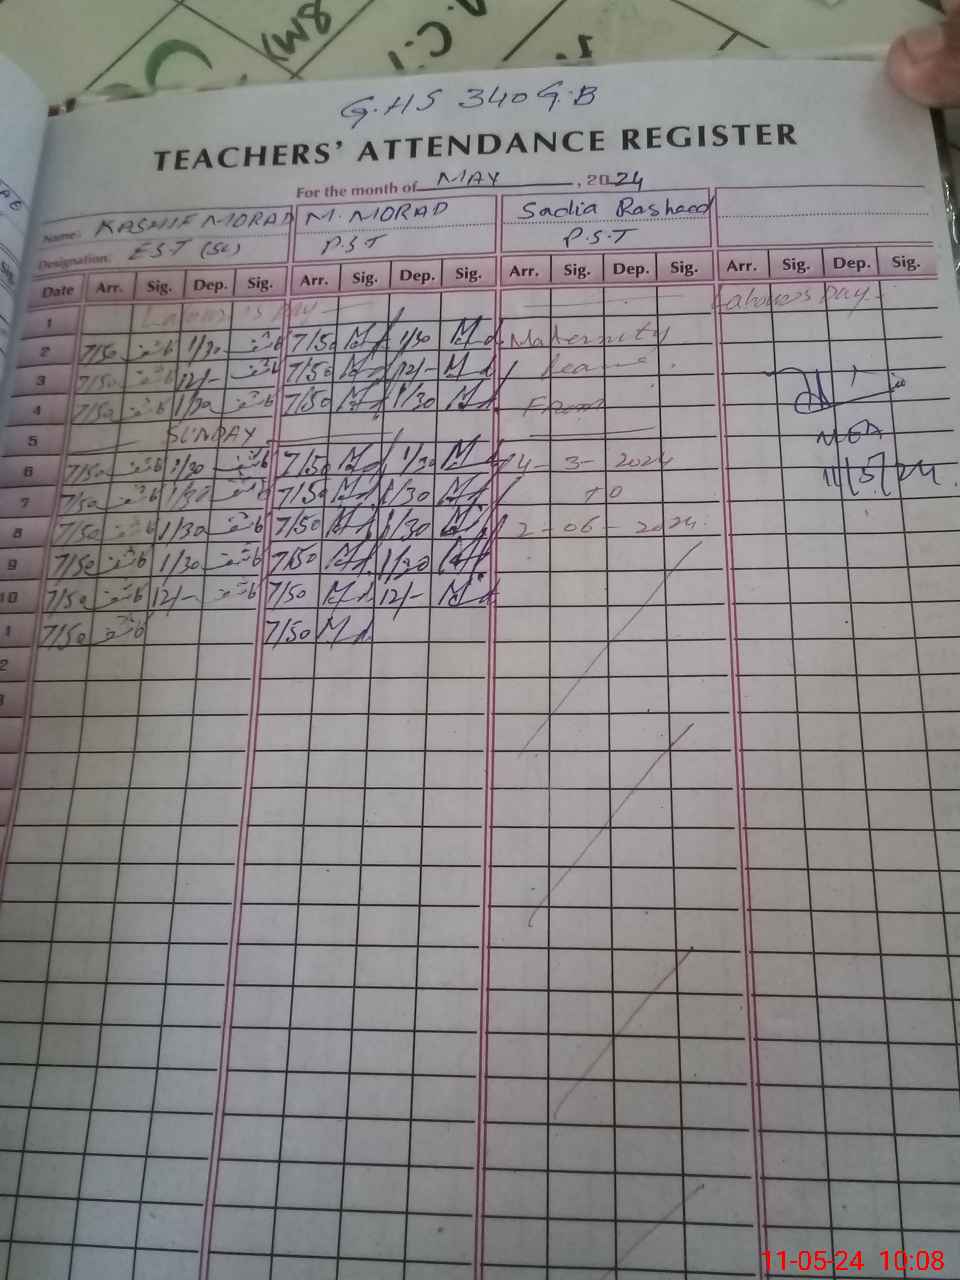 G.H.S 340 G.B
TEACHERS' ATTENDANCE REGISTER
For the month of MAY, 2024
Name: KASHIF MORAD M. MORAD Sadia Rasheed
Designation: EST (SC) P.S.T P.S.T
Date Arr. Sig. Dep. Sig. Arr. Sig. Dep. Sig. Arr. Sig. Dep. Sig. Arr. Sig. Dep. Sig.
1 Labour's Day Labour's Day
2 7/50 1/30 7/50 1/30 Maternity
3 7/50 12/- 7/50 12/- leave
4 7/50 1/30 7/50 1/30 From
5 SUNDAY
6 7/50 1/30 7/50 1/30 4-3-2024
7 7/50 1/30 7/50 1/30 to
8 7/50 1/30 7/50 1/30 2-06-2024
9 7/50 1/30 7/50 1/30
10 7/50 12/- 7/50 12/-
1 7/50 7/50
2
3
MEA
11/5/24
11-05-24 10:08